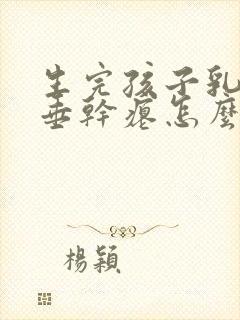 生完孩子乳
垂幹癟怎麼
楊穎